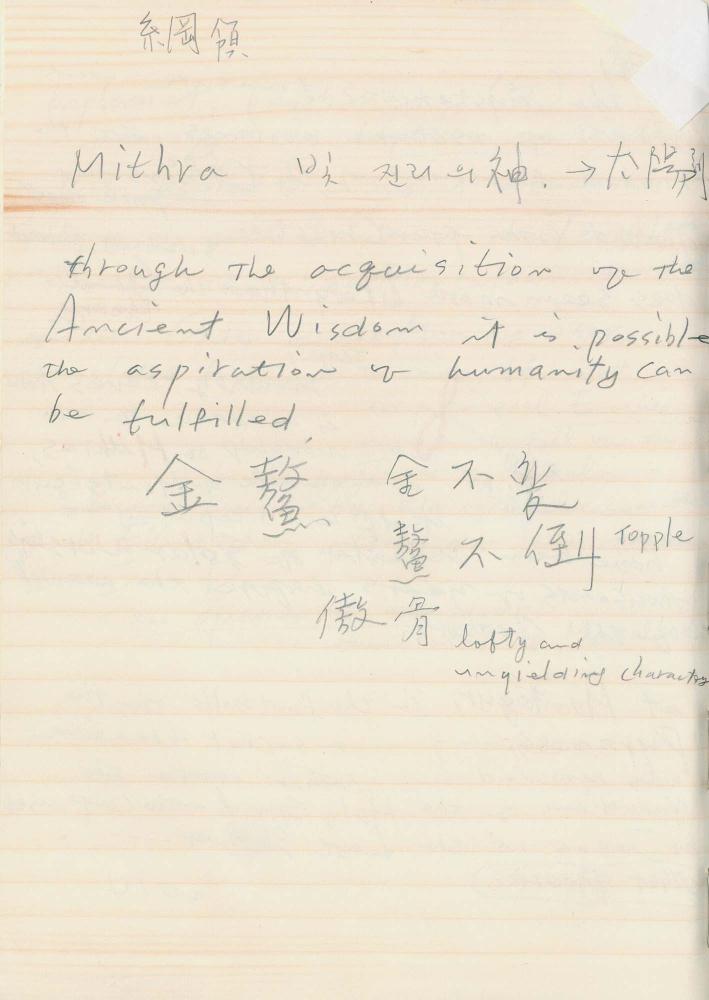 綱領
Mithra 빛 진리의 神. → 太陽
through the acquisition of the
Ancient Wisdom it is possible
the aspiration of humanity can
be fulfilled.
金鰲 金不変
鰲不倒 Topple
傲骨 lofty and
unyielding character